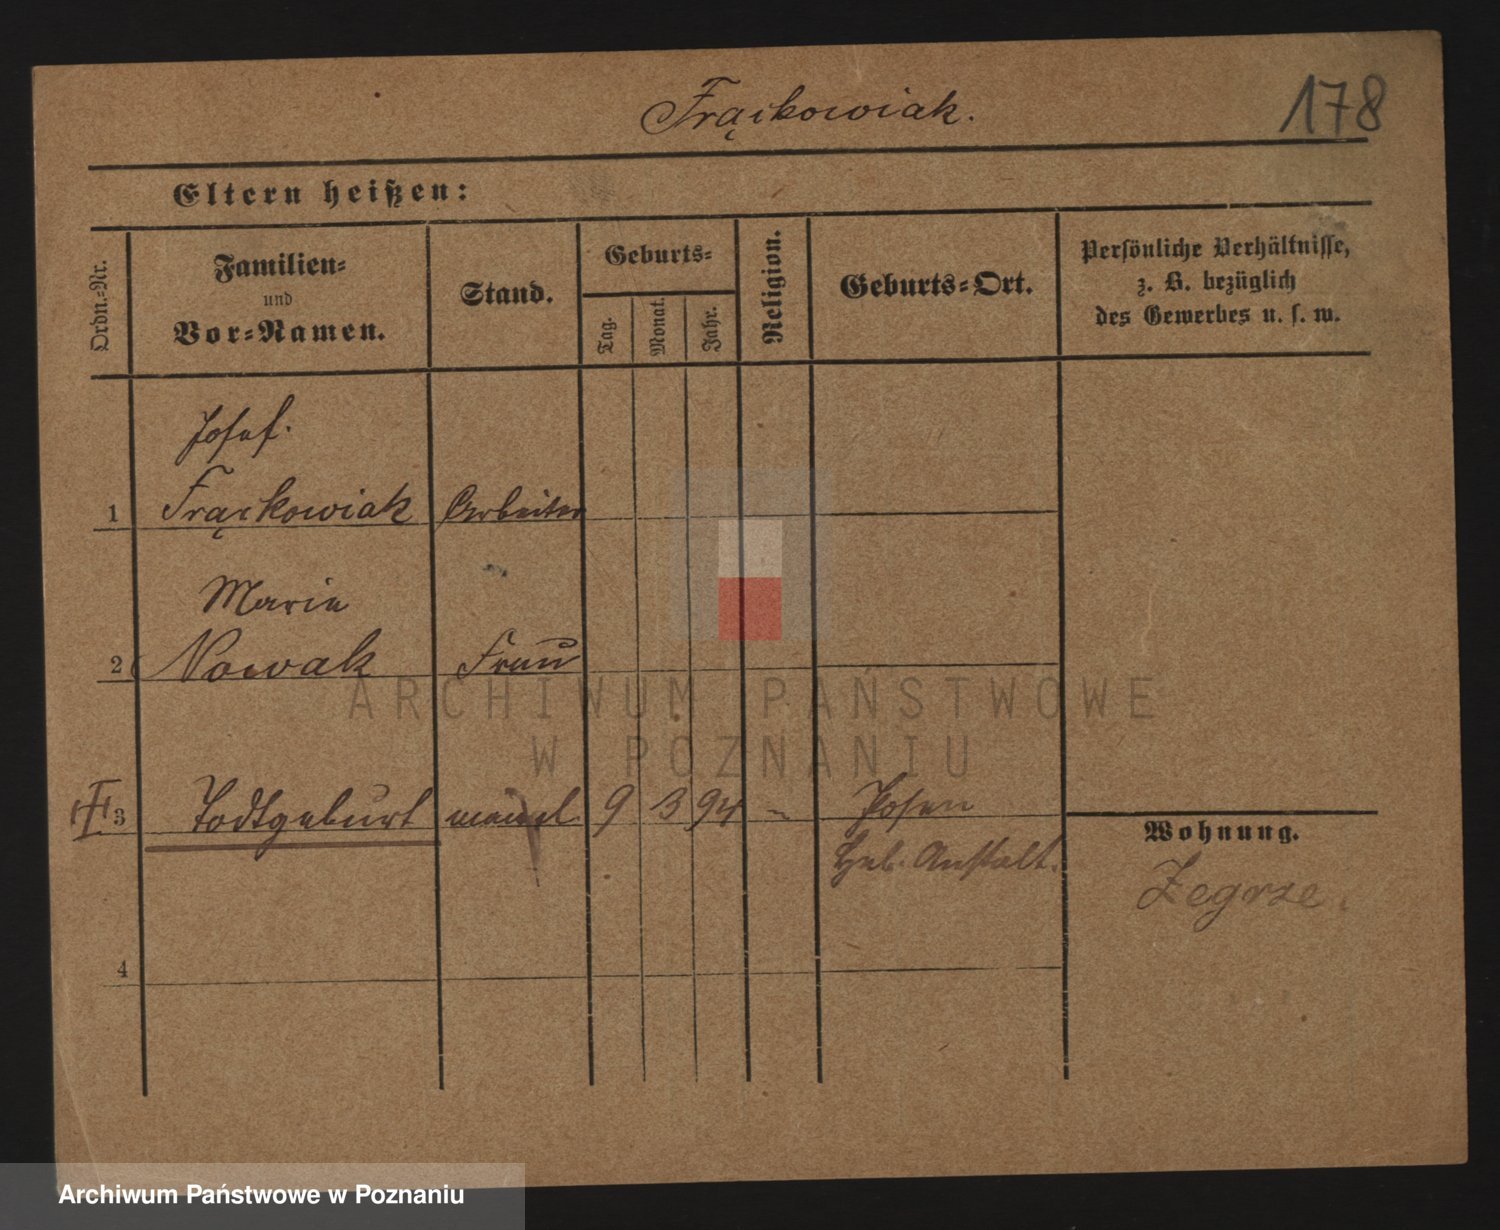 Frąckowiak.
178
Eltern heißen:
Ordn.-Nr.
Familien-
und
Vor-Namen.
Stand.
Geburts-
Tag.
Monat.
Jahr.
Religion.
Geburts-Ort.
Persönliche Verhältnisse,
z. B. bezüglich
des Gewerbes u. s. w.
Josef.
1 Frąckowiak Arbeiter
Marie
2 Nowak Frau
3 Todtgeburt 9 3 94 - Posen
Geb. Anstalt.
Wohnung.
Zegrze.
4
ARCHIWUM PAŃSTWOWE
W POZNANIU
Archiwum Państwowe w Poznaniu